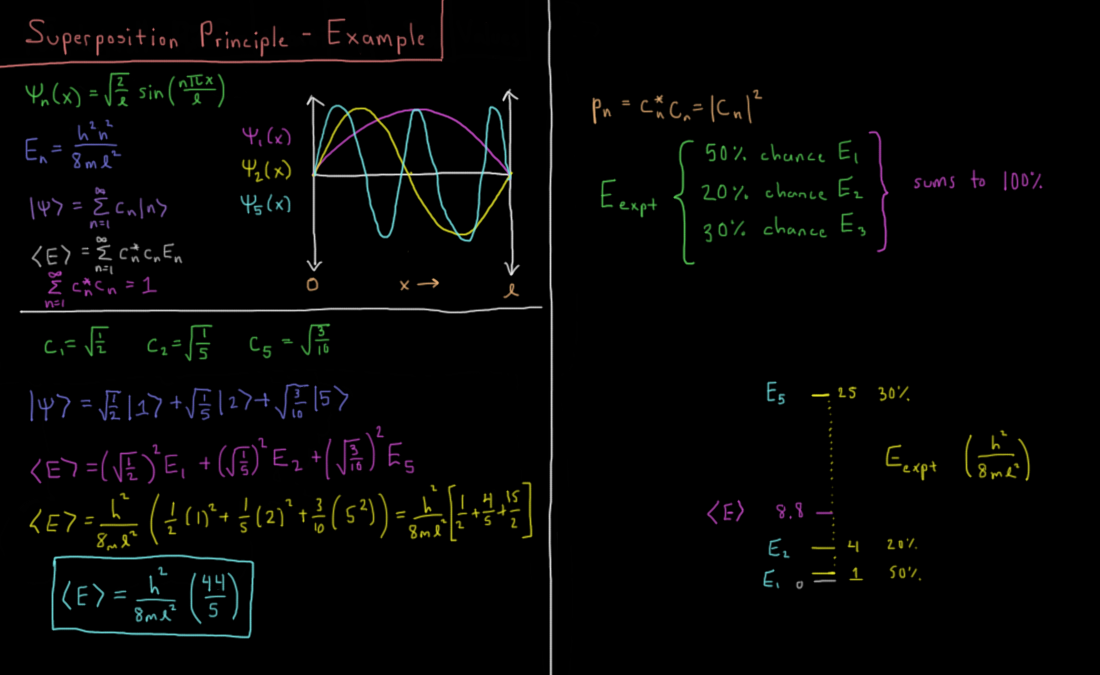 Superposition Principle - Example
Ψₙ(x) = √(2/l) sin(nπx/l)
Eₙ = h²n²/8ml²
|Ψ> = Σₙ₌₁^∞ cₙ|n>
<E> = Σₙ₌₁^∞ cₙ*cₙEₙ
Σₙ₌₁^∞ cₙ*cₙ = 1
Ψ₁(x)
Ψ₂(x)
Ψ₅(x)
0 x → l
c₁ = √(1/2) c₂ = √(1/5) c₅ = √(3/10)
|Ψ> = √(1/2)|1> + √(1/5)|2> + √(3/10)|5>
<E> = (√(1/2))²E₁ + (√(1/5))²E₂ + (√(3/10))²E₅
<E> = h²/8ml² (1/2(1)² + 1/5(2)² + 3/10(5²)) = h²/8ml² [1/2 + 4/5 + 15/2]
<E> = h²/8ml² (44/5)
pₙ = cₙ*cₙ = |cₙ|²
E expt
50% chance E₁
20% chance E₂
30% chance E₃
sums to 100%
E₅ 25 30%
E expt (h²/8ml²)
<E> 8.8
E₂ 4 20%
E₁ 0 1 50%